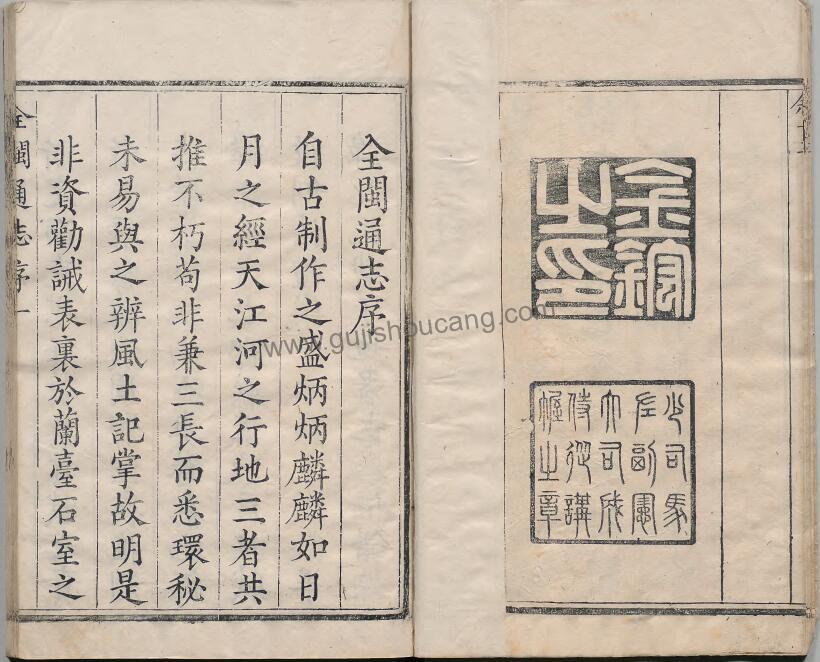 金鋐
之印
少司馬
左副憲
大司成
侍從講
幄之章
全閩通志序
自古制作之盛炳炳麟麟如日
月之經天江河之行地三者共
推不朽苟非兼三長而悉環秘
未易與之辨風土記掌故明是
非資勸誡表裏於蘭臺石室之
全閩通志序一
www.gujishoucang.com